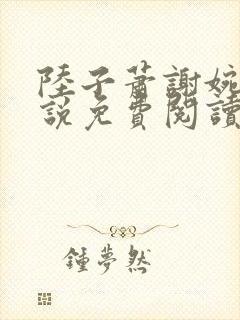 陸子蕭謝婉
說免費閱讀
鍾夢然